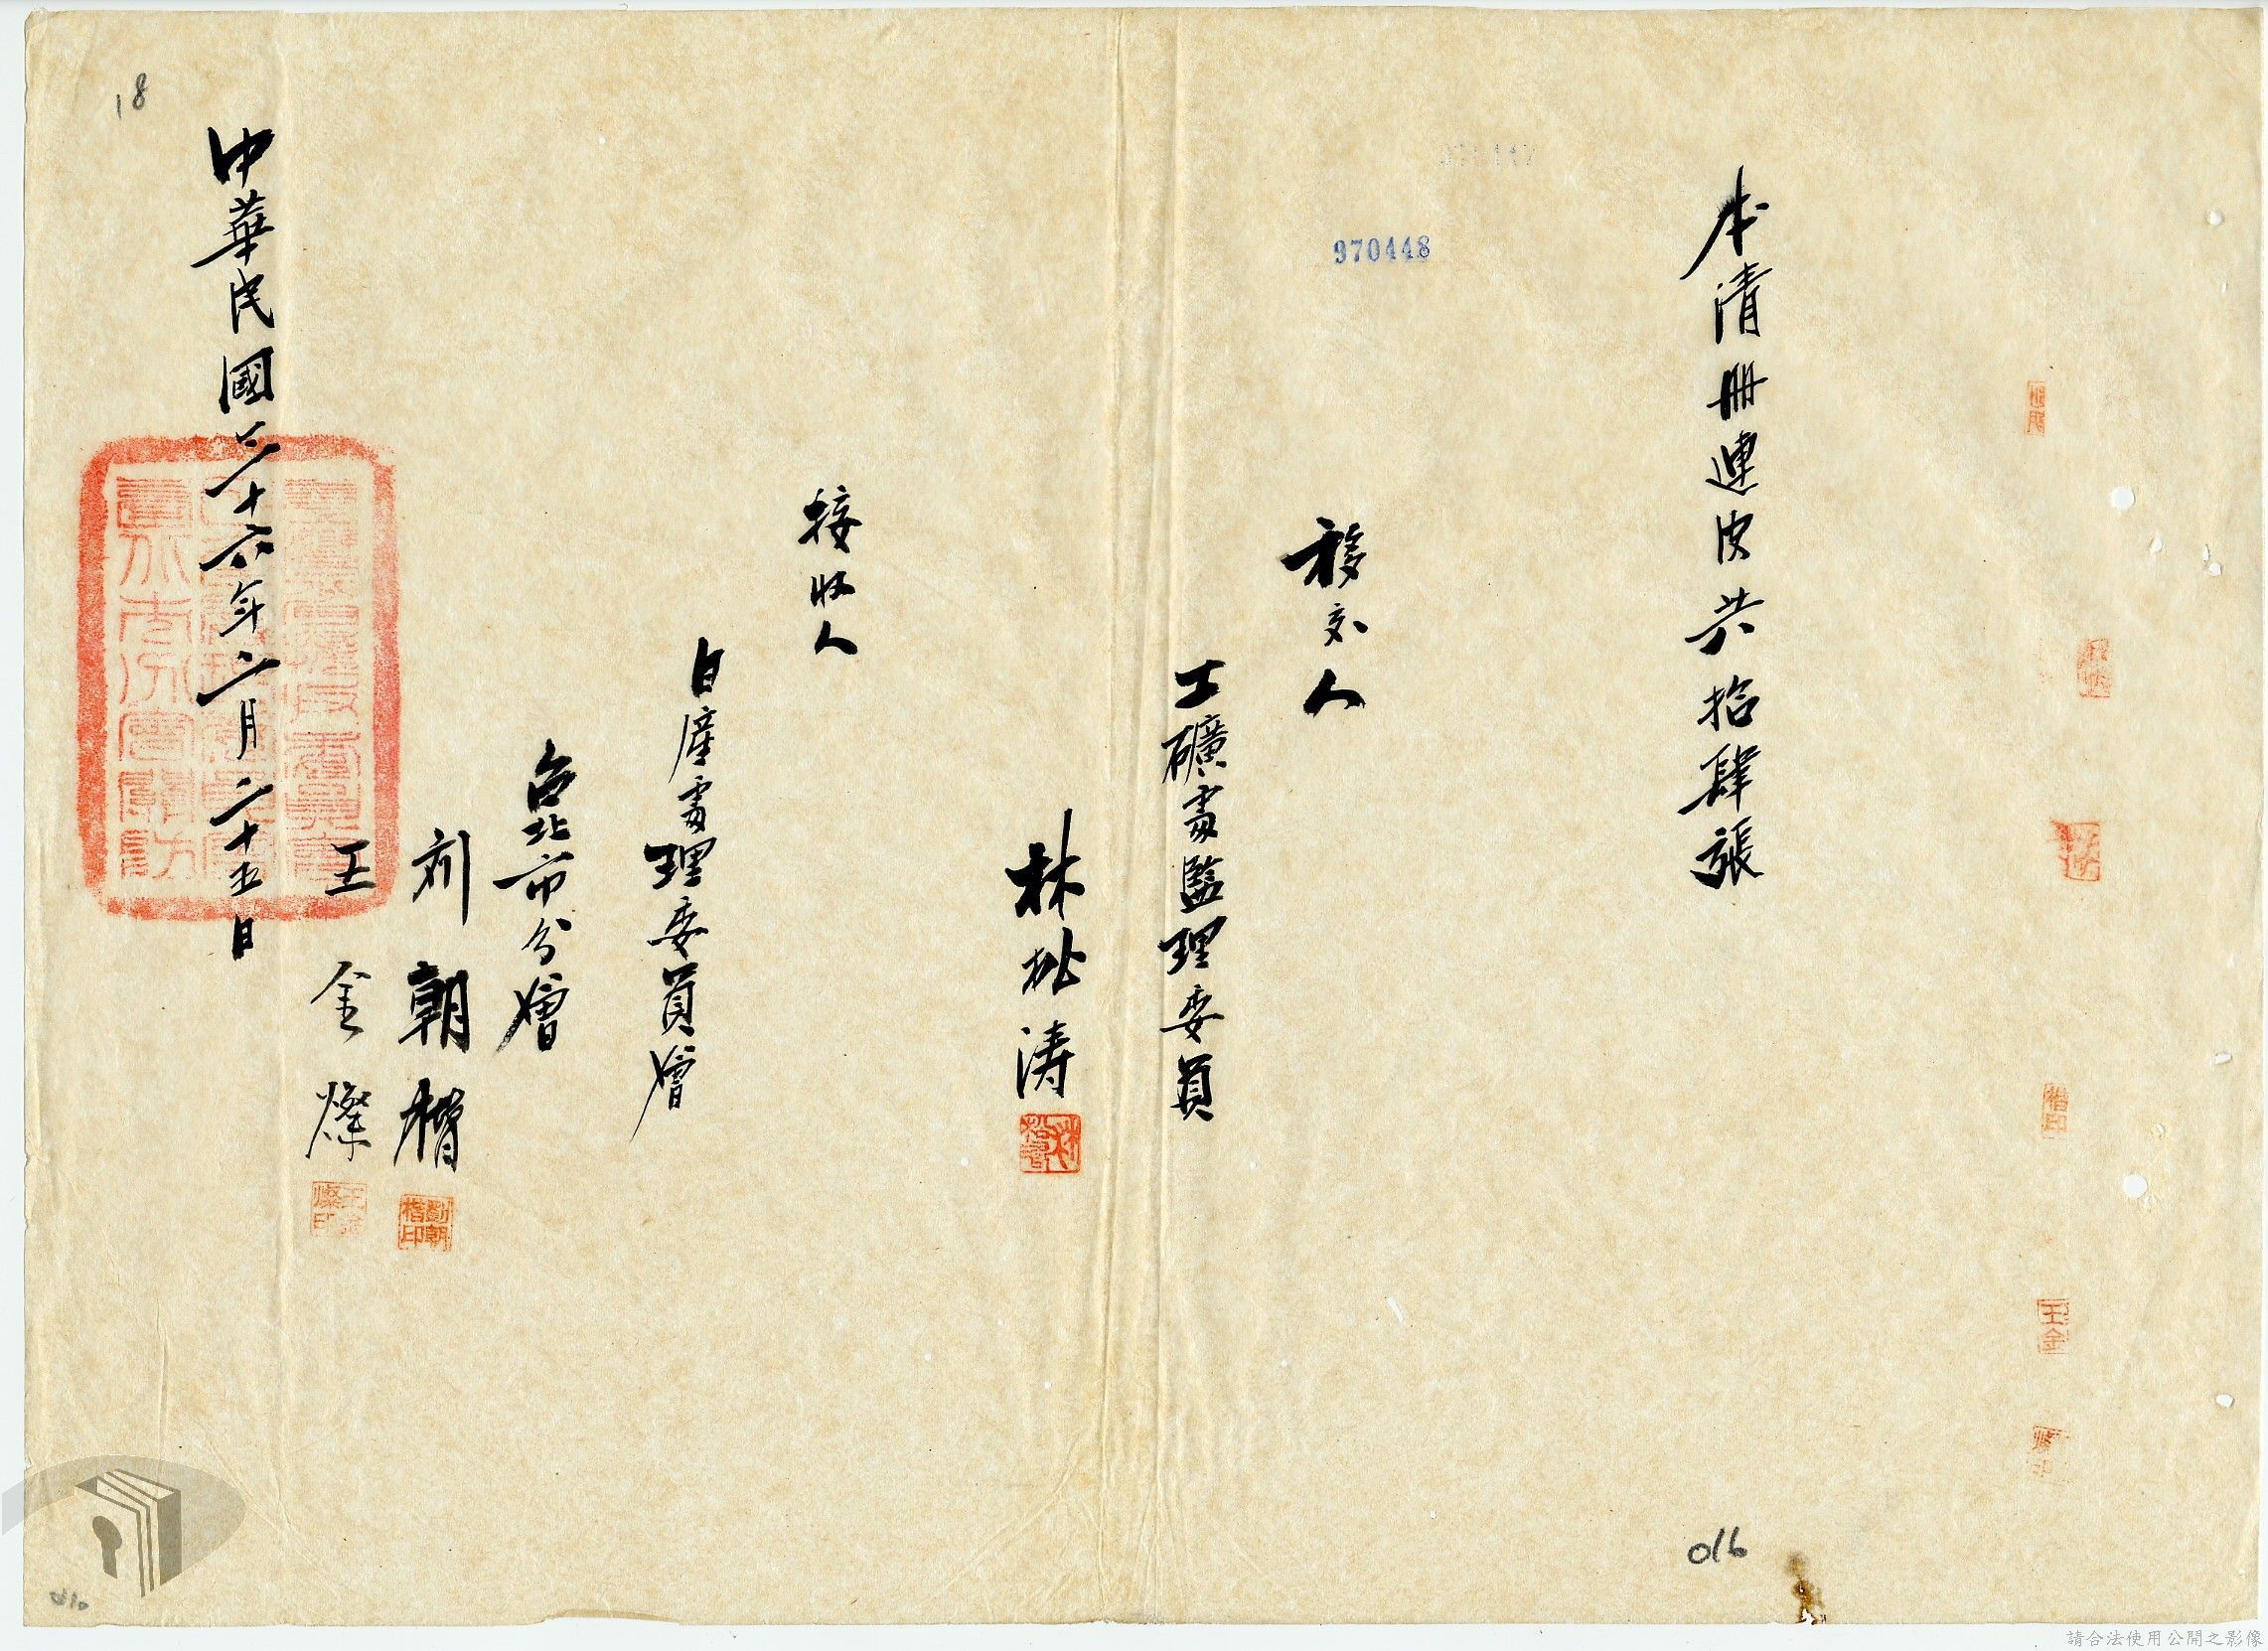 本清册連皮共拾肆張
970448
移交人
工礦處監理委員
林 涛
接收人
日產處理委員會
台北市分會
刘朝楷
劉朝楷印
王金燦
中華民國三十六年二月二十五日
18
016
王金
楷印
請合法使用公開之影像